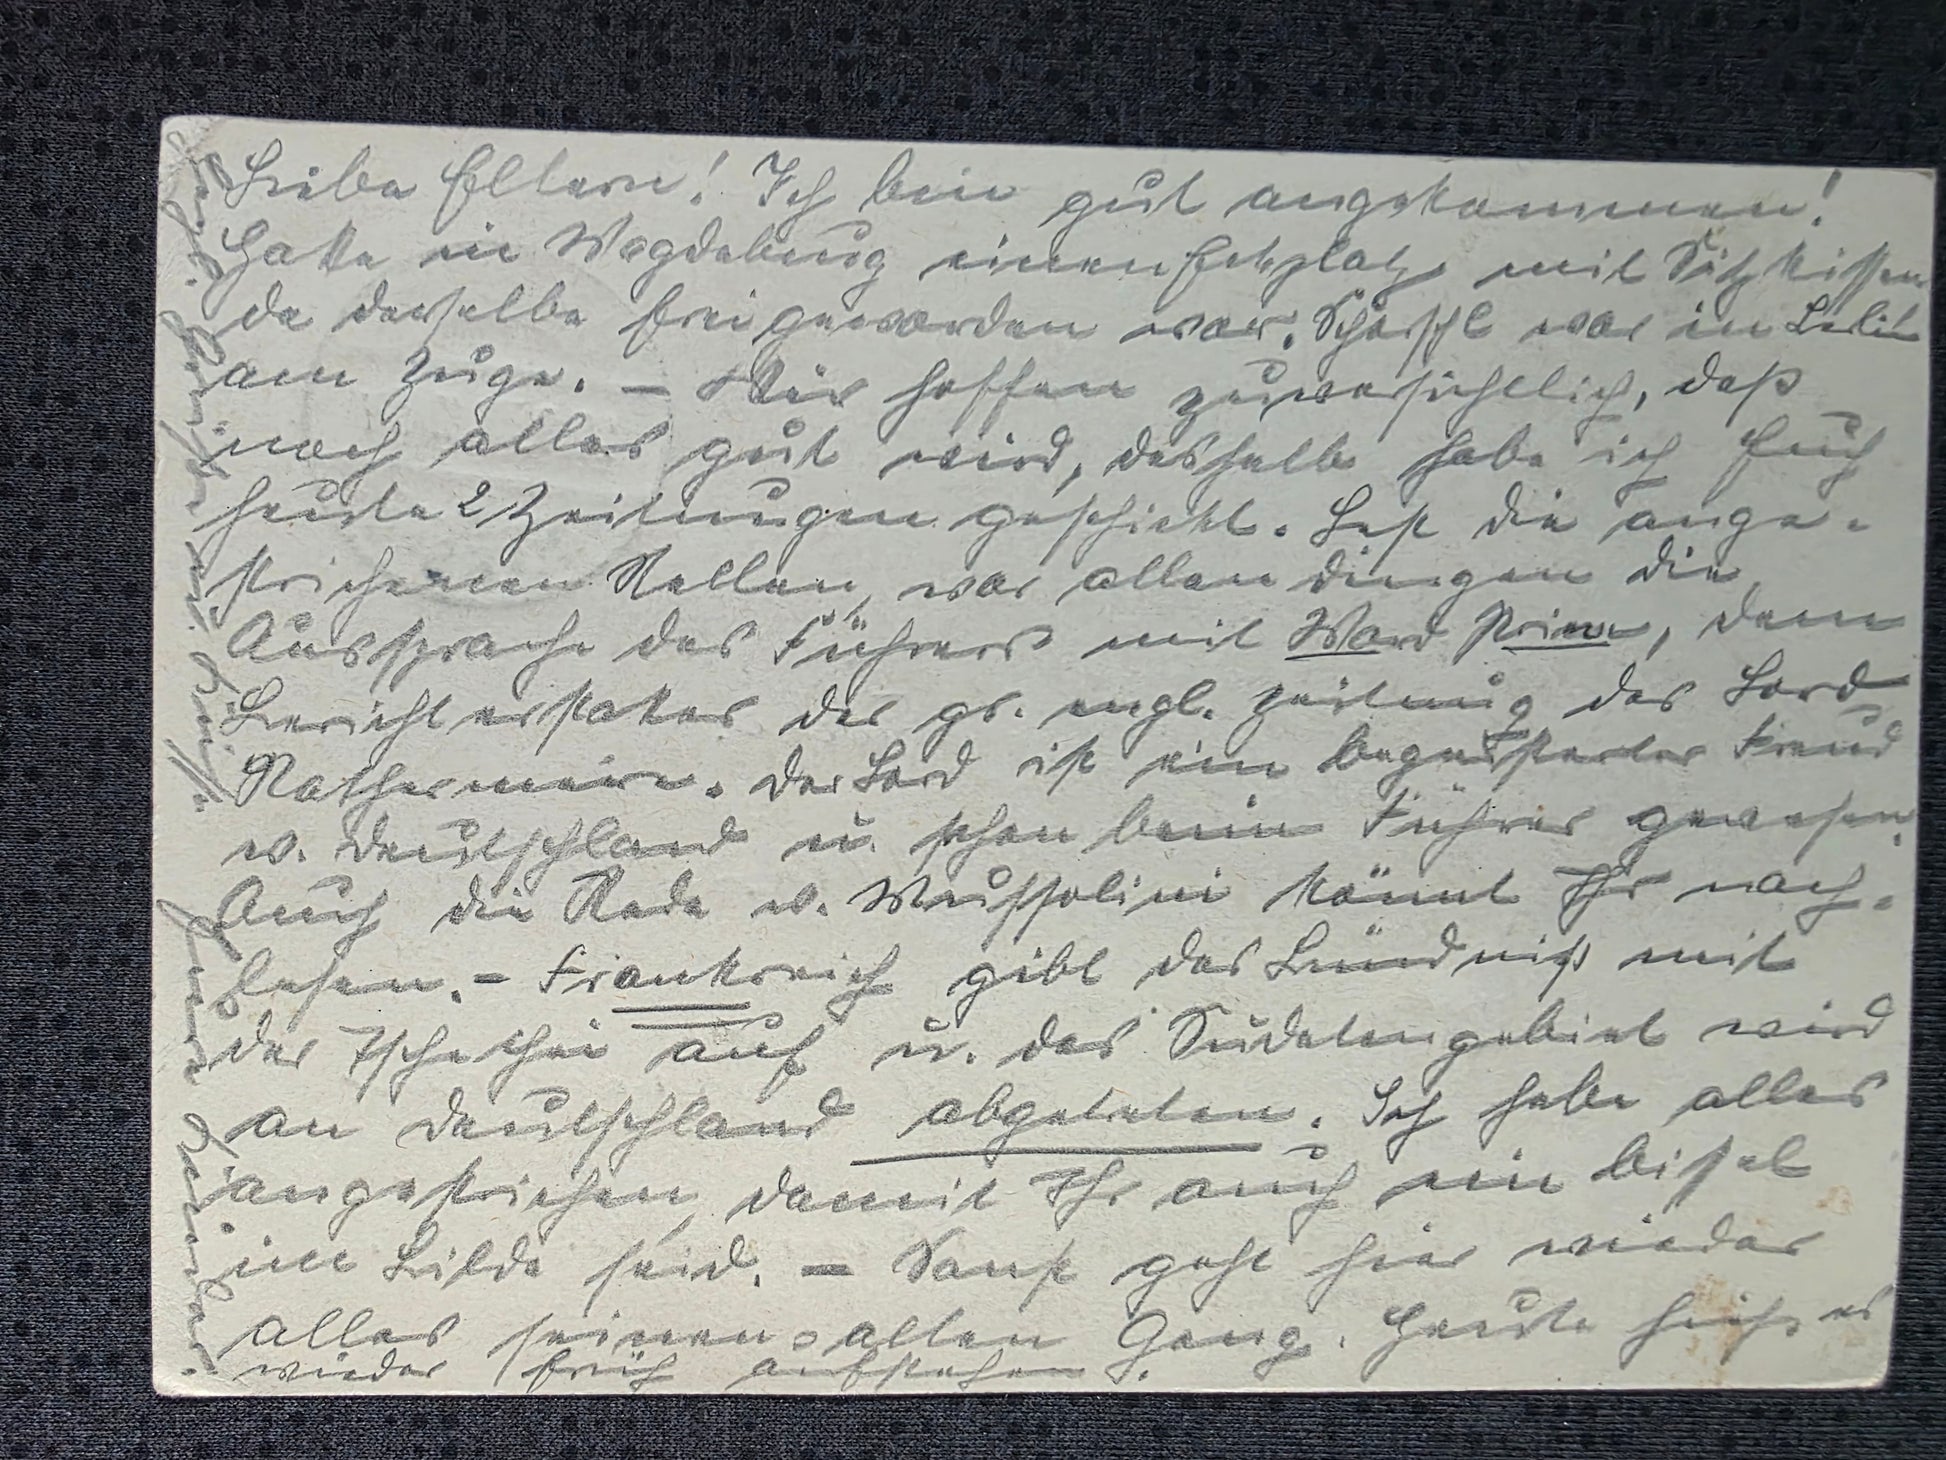 Liebe Eltern! Ich bin gut angekommen!
Hatte in Magdeburg einen Eckplatz mit Sitzkissen
da derselbe frei geworden war. Scharfl war in Berlin
am Zuge. – Wir hoffen zuversichtlich, daß
noch alles gut wird, deshalb habe ich Euch
heute 2 Zeitungen geschickt. Lest die ange-
strichenen Stellen, vor allen dingen die
Aussprache des Führers mit Ward Price, dem
Berichterstatter der gr. engl. Zeitung des Lord
Rothermere. Der Lord ist ein begeisterter Freund
v. Deutschland u. schon beim Führer gewesen.
Auch die Rede v. Mussolini könnt Ihr nach-
lesen. – Frankreich gibt das Bündniß mit
der Tschechei auf u. das Sudetengebiet wird
an Deutschland abgetreten. Ich habe alles
angestrichen, damit Ihr auch ein bissel
im Bilde seid. – Sonst geht hier wieder
alles seinen alten Gang. Heute hieß es
wieder früh aufstehen.
Herzl. Grüße